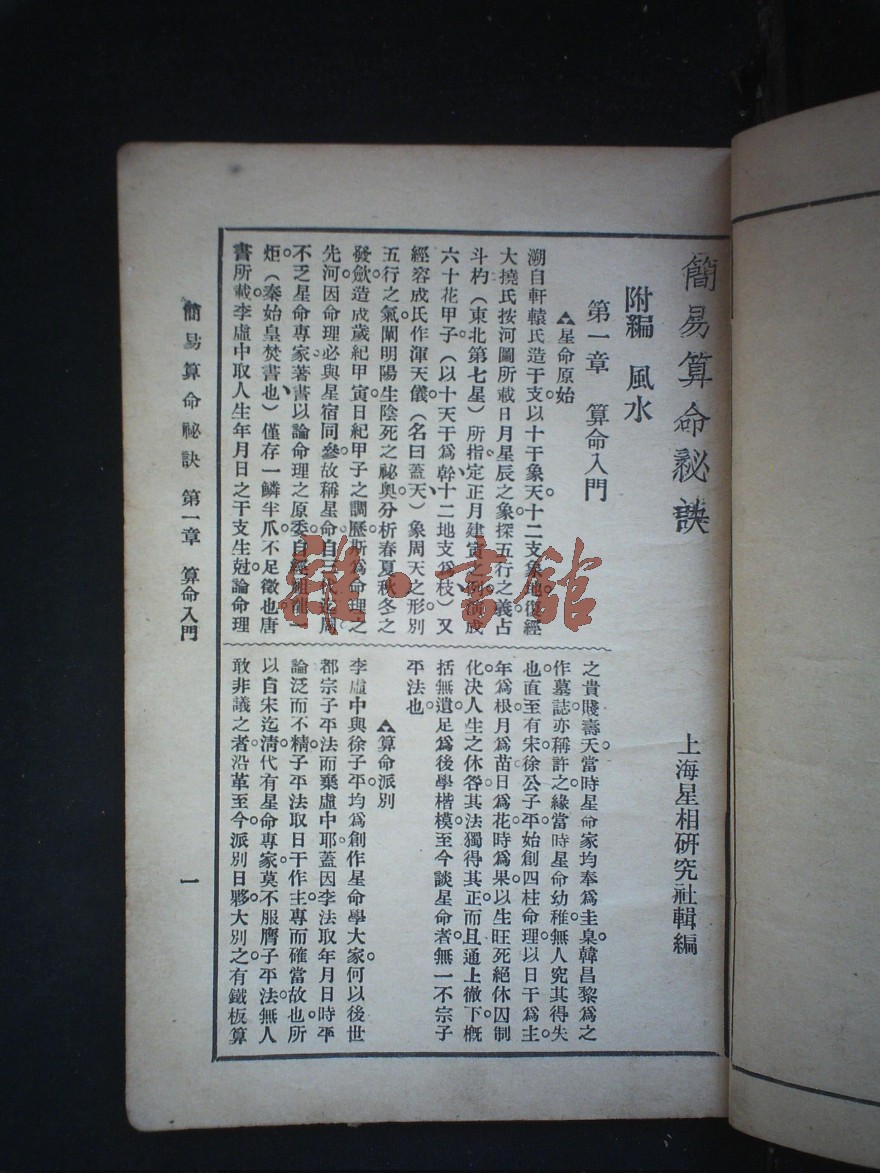 簡易算命秘訣
上海星相研究社輯編
附編 風水
第一章 算命入門
星命原始
溯自軒轅氏造干支。以十干象天。十二支象地。復經
大撓氏按河圖所載日月星辰之象。探五行之義。占
斗杓(東北第七星)所指。定正月建寅之例。演成
六十花甲子。(以十天干爲幹、十二地支爲枝)又
經容成氏作渾天儀。(名曰蓋天)象周天之形。別
五行之氣。闡明陽生陰死之祕奧。分析春夏秋冬之
發歛。造成歲紀甲寅日紀甲子之調歷。斯爲命理之
先河。因命理必與星宿同參。故稱星命。自三代迄周
不乏星命專家著書以論命理之原委。自經
炬(秦始皇焚書也)僅存一鱗半爪。不足徵也。唐
書所載李虛中取人生年月日之干支生尅。論命理
之貴賤壽夭。當時星命家均奉爲圭臬。韓昌黎爲之
作墓誌。亦稱許之。緣當時星命幼稚。無人究其得失
也。直至有宋徐公子平。始創四柱命理。以日干爲主。
年爲根。月爲苗。日爲花。時爲果。以生旺死絕休囚制
化。決人生之休咎。其法獨得其正。而且通上徹下。概
括無遺。足爲後學楷模。至今談星命者。無一不宗子
平法也。
算命派別
李虛中與徐子平。均爲創作星命學大家。何以後世
都宗子平法而棄虛中耶。蓋因李法取年月日時。平
論泛而不精。子平法取日干作主。專而確當故也。所
以自宋迄清。代有星命專家。莫不服膺子平法。無人
敢非議之者。沿革至今。派別日夥。大別之有鐵板算
簡易算命祕訣 第一章 算命入門
一
雜·書館